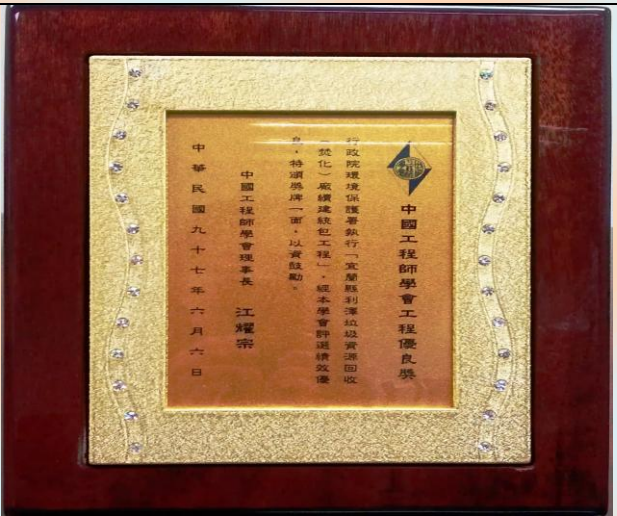 中國工程師學會工程優良獎
行政院環境保護署執行「宜蘭縣利澤垃圾資源回收
(焚化)廠續建統包工程」,經本學會評選績效優
良,特頒獎牌一面,以資鼓勵。
中國工程師學會理事長 江耀宗
中華民國九十七年六月六日